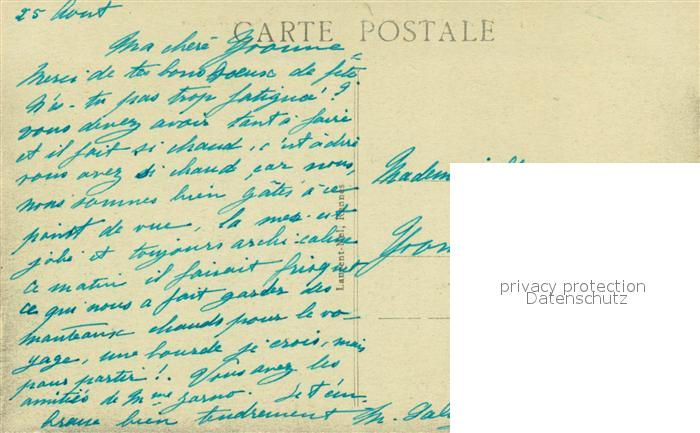 25 Aout
CARTE POSTALE
Ma chère Yvonne
Merci de tes bons voeux de fête.
N'es-tu pas trop fatiguée! ?
vous devez avoir tant à faire
et il fait si chaud, c'est à dire
vous avez si chaud, car nous,
nous sommes bien gâtés à ce
point de vue, la mer est
jolie et toujours archi-calme
ce matin il faisait frisquet
ce qui nous a fait garder des
manteaux chauds pour le vo-
yage, une bourde je crois, mais
pour partir!. Vous avez les
amitiés de Mme Jarno. Je t'em-
brasse bien tendrement
Mademoi
Yvon
Laurent-Nel, Rennes
privacy protection
Datenschutz